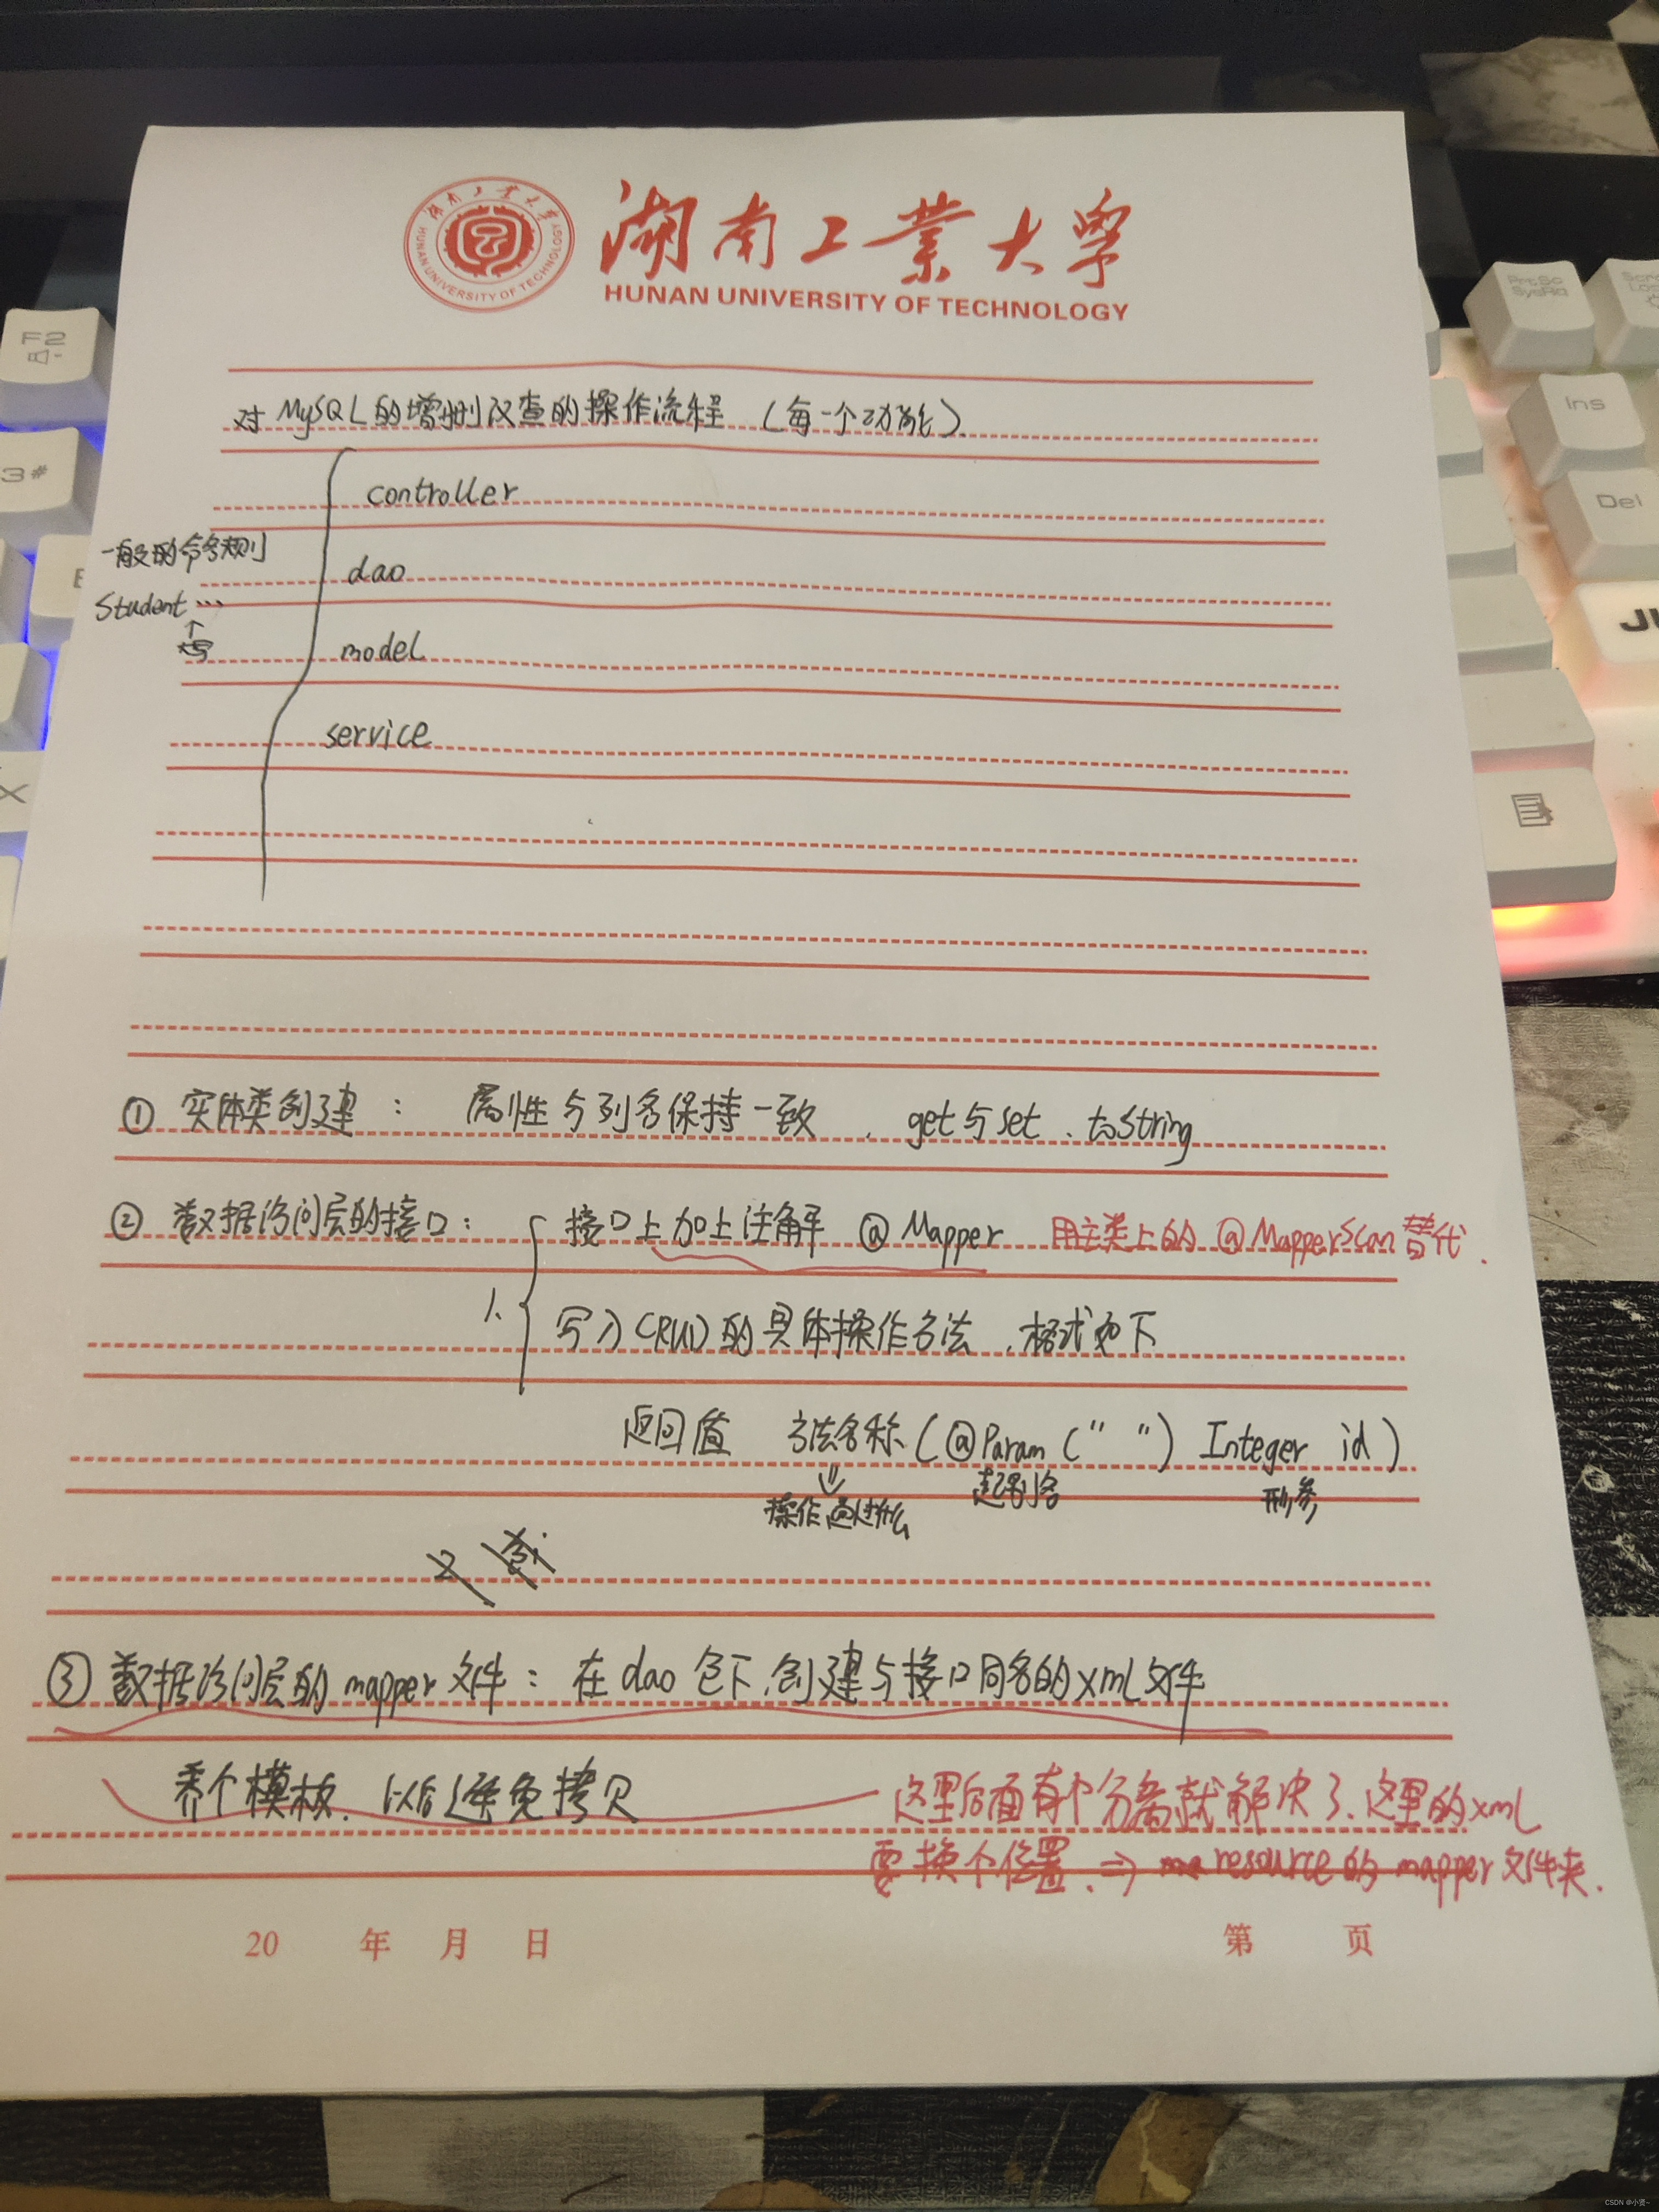 湖南工业大学
HUNAN UNIVERSITY OF TECHNOLOGY
湖南工业大学
HUNAN UNIVERSITY OF TECHNOLOGY
对MySQL的增删改查的操作流程（每一个功能）.
controller
一般的命名规则
dao
Student ...
↑
大写
model
service
① 实体类创建： 属性与列名保持一致 、get与set、toString
② 数据访问层的接口： 接口上加上注解 @Mapper 用主类上的 @MapperScan替代.
1、 写入CRUD的具体操作方法 ,格式如下
返回值 方法名称(@Param(" ") Integer id)
⇓ 起别名 形参
操作通过什么
2
③ 数据访问层的 mapper 文件： 在 dao 包下,创建与接口同名的xml文件
弄个模板. 以后避免拷贝 这里后面有个分离就解决了、这里的xml
要换个位置. ⇒ resource的 mapper文件夹.
20 年 月 日 第 页
F2
3#
E
X
PrtSc
SysRq
Ins
Del
CSDN @小贤~